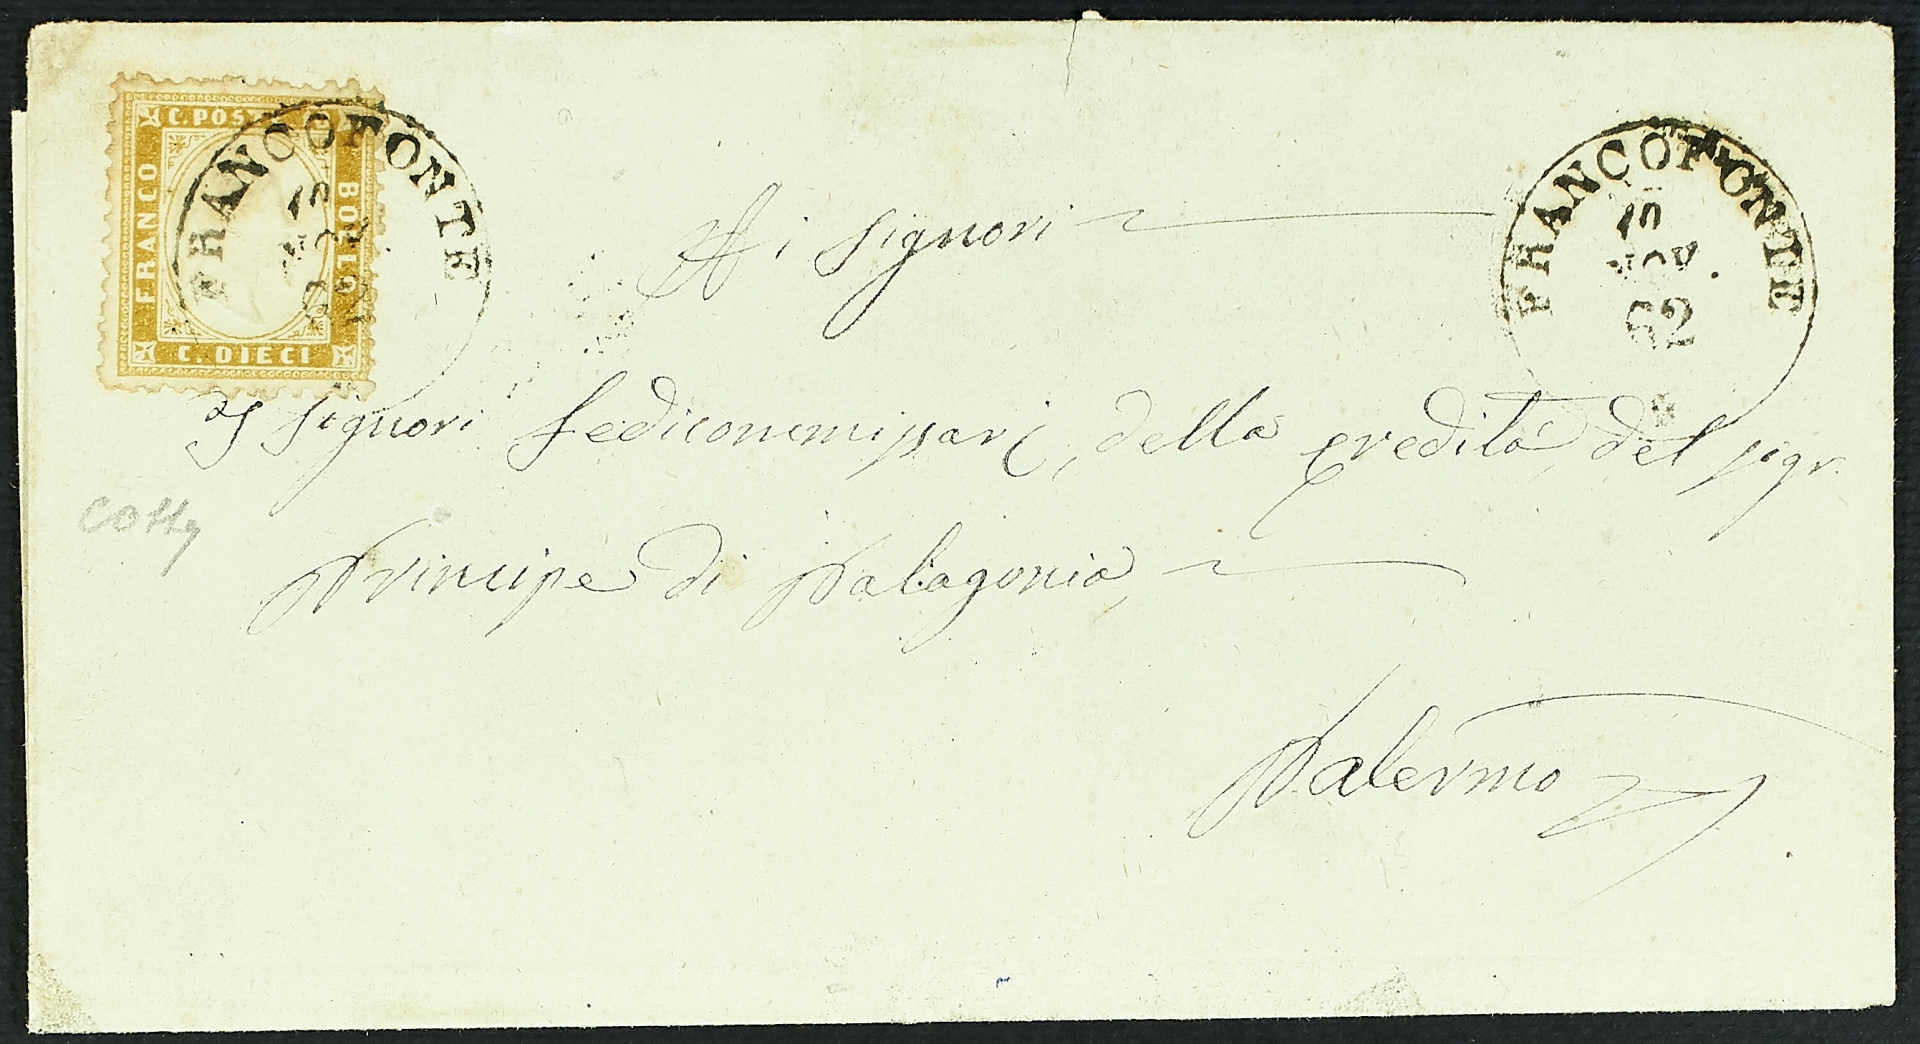 C. POST
FRANCO
BOLLO
C. DIECI
FRANCOFONTE
FRANCOFONTE
15
NOV
62
Ai Signori
I Signori Fediconmmissari, della eredità, del sigr.
Principe di Palagonia,
Palermo